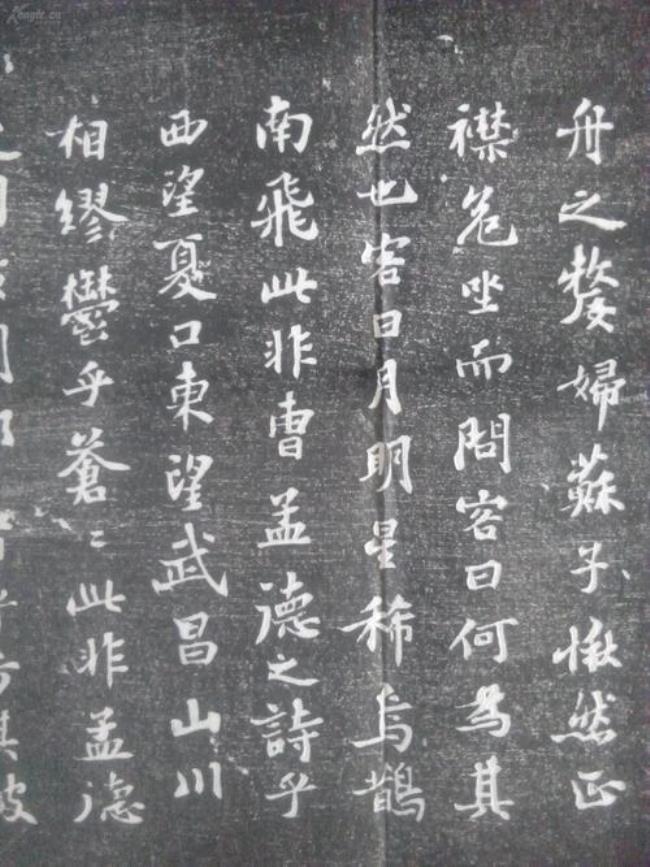 舟之嫠婦蘇子愀然正
襟危坐而問客曰何為其
然也客曰月明星稀烏鵲
南飛此非曹孟德之詩乎
西望夏口東望武昌山川
相繆鬱乎蒼〻此非孟德